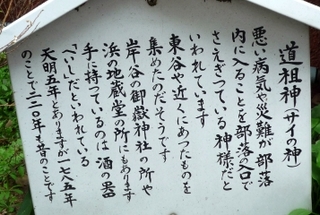 道祖神(サイの神)
悪い病気や災難が部落
内に入ることを部落の入口で
さえぎっている神様だと
いわれています
東谷や近くにあったものを
集めたのだそうです
岸谷の御嶽神社の所や
浜の地蔵堂の所にもあります
手に持っているのは酒の器
「へいし」だといわれている
天明五年とありますが一七八五年
のことで二二〇年も昔のことです